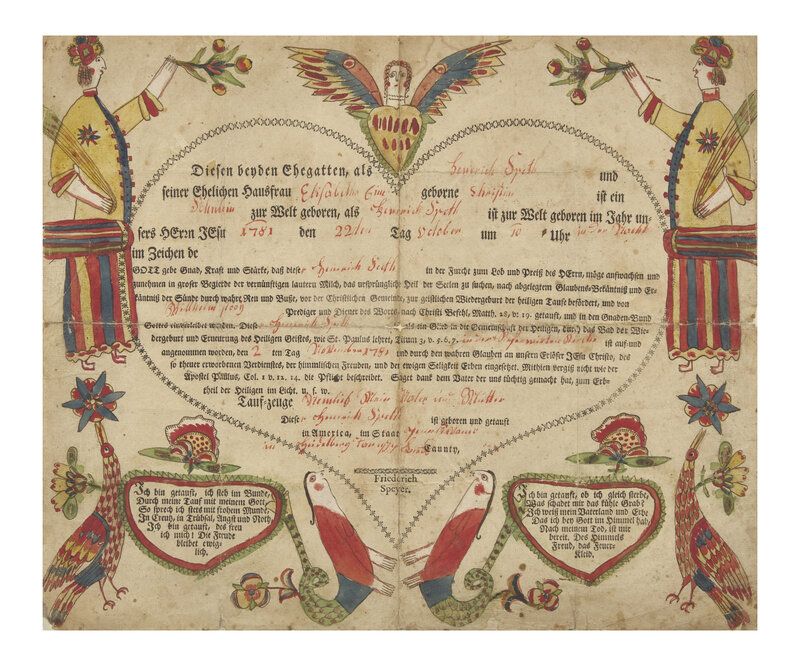 Diesen beyden Ehegatten, als Heinrich Speth und
seiner Ehelichen Hausfrau Elisabetha geborne Christin
zur Welt geboren, als Heinrich Speth ist ein
ist zur Welt geboren im Jahr un-
sers HErrn JEsu 1781 den 22ten Tag October um 10 Uhr
im Zeichen de
GOTT gebe Gnad, Kraft und Stärke, daß dieser Heinrich Speth in der Furcht zum Lob und Preiß des HErrn, möge aufwachsen und
zunehmen in groser Begierde der vernünftigen lautern Milch, das ursprüngliche Heil der Seelen zu suchen, nach abgelegtem Glaubens-Bekäntniß und Er-
käntniß der Sünde durch wahre Reu und Buße, vor der Christlichen Gemeinte, zur geistlichen Wiedergeburt der heiligen Taufe befördert, und von
Prediger und Diener des Worts nach Christi Befehl, Math. 28. v. 19. getauft, und in den Gnaden-Bund
Gottes einverleibet worden. Dieser Heinrich Speth als ein Glied in die Gemeinschaft der Heiligen, durch das Bad der Wie-
dergeburt und Erneurung des Heiligen Geistes, wie St. Paulus lehret, Titum 3. v. 5. 6. 7. in der ist auf- und
angenommen worden, den 2 ten Tag November 1781 und durch den wahren Glauben an unsern Erlöser JEsu Christo, des
so theuer erworbenen Verdienstes, der himmlischen Freuden, und der ewigen Seligkeit Erben eingesetzet. Mithien vergiß nicht wie der
Apostel Paulus, Col. 1 v. 12. 14. die Pflicht beschreibet. Saget dank dem Vater der uns tüchtig gemacht hat, zum Erb-
theil der Heiligen im Licht. u. s. w.
Tauf-zeuge Vater und Mutter
Dieser Heinrich Speth ist geboren und getauft
in America, im Staat
in Heidelberg Caunty,
Friederich
Speyer.
Ich bin getauft, ich steh im Bunde,
Durch meine Tauf mit meinem Gott,
So sprech ich stets mit frohem Munde,
In Creutz, in Trübsal, Angst und Noth
Ich bin getauft, des freu
ich mich! Die Freude
bleibet ewig-
lich.
Ich bin getauft, ob ich gleich sterbe,
Was schadet mir das kühle Grab?
Ich weiß mein Vaterland und Erbe
Das ich bey Gott im Himmel hab,
Nach meinem Tod, ist mir
bereit. Des Himmels
Freud, das Feuer-
Kleid.